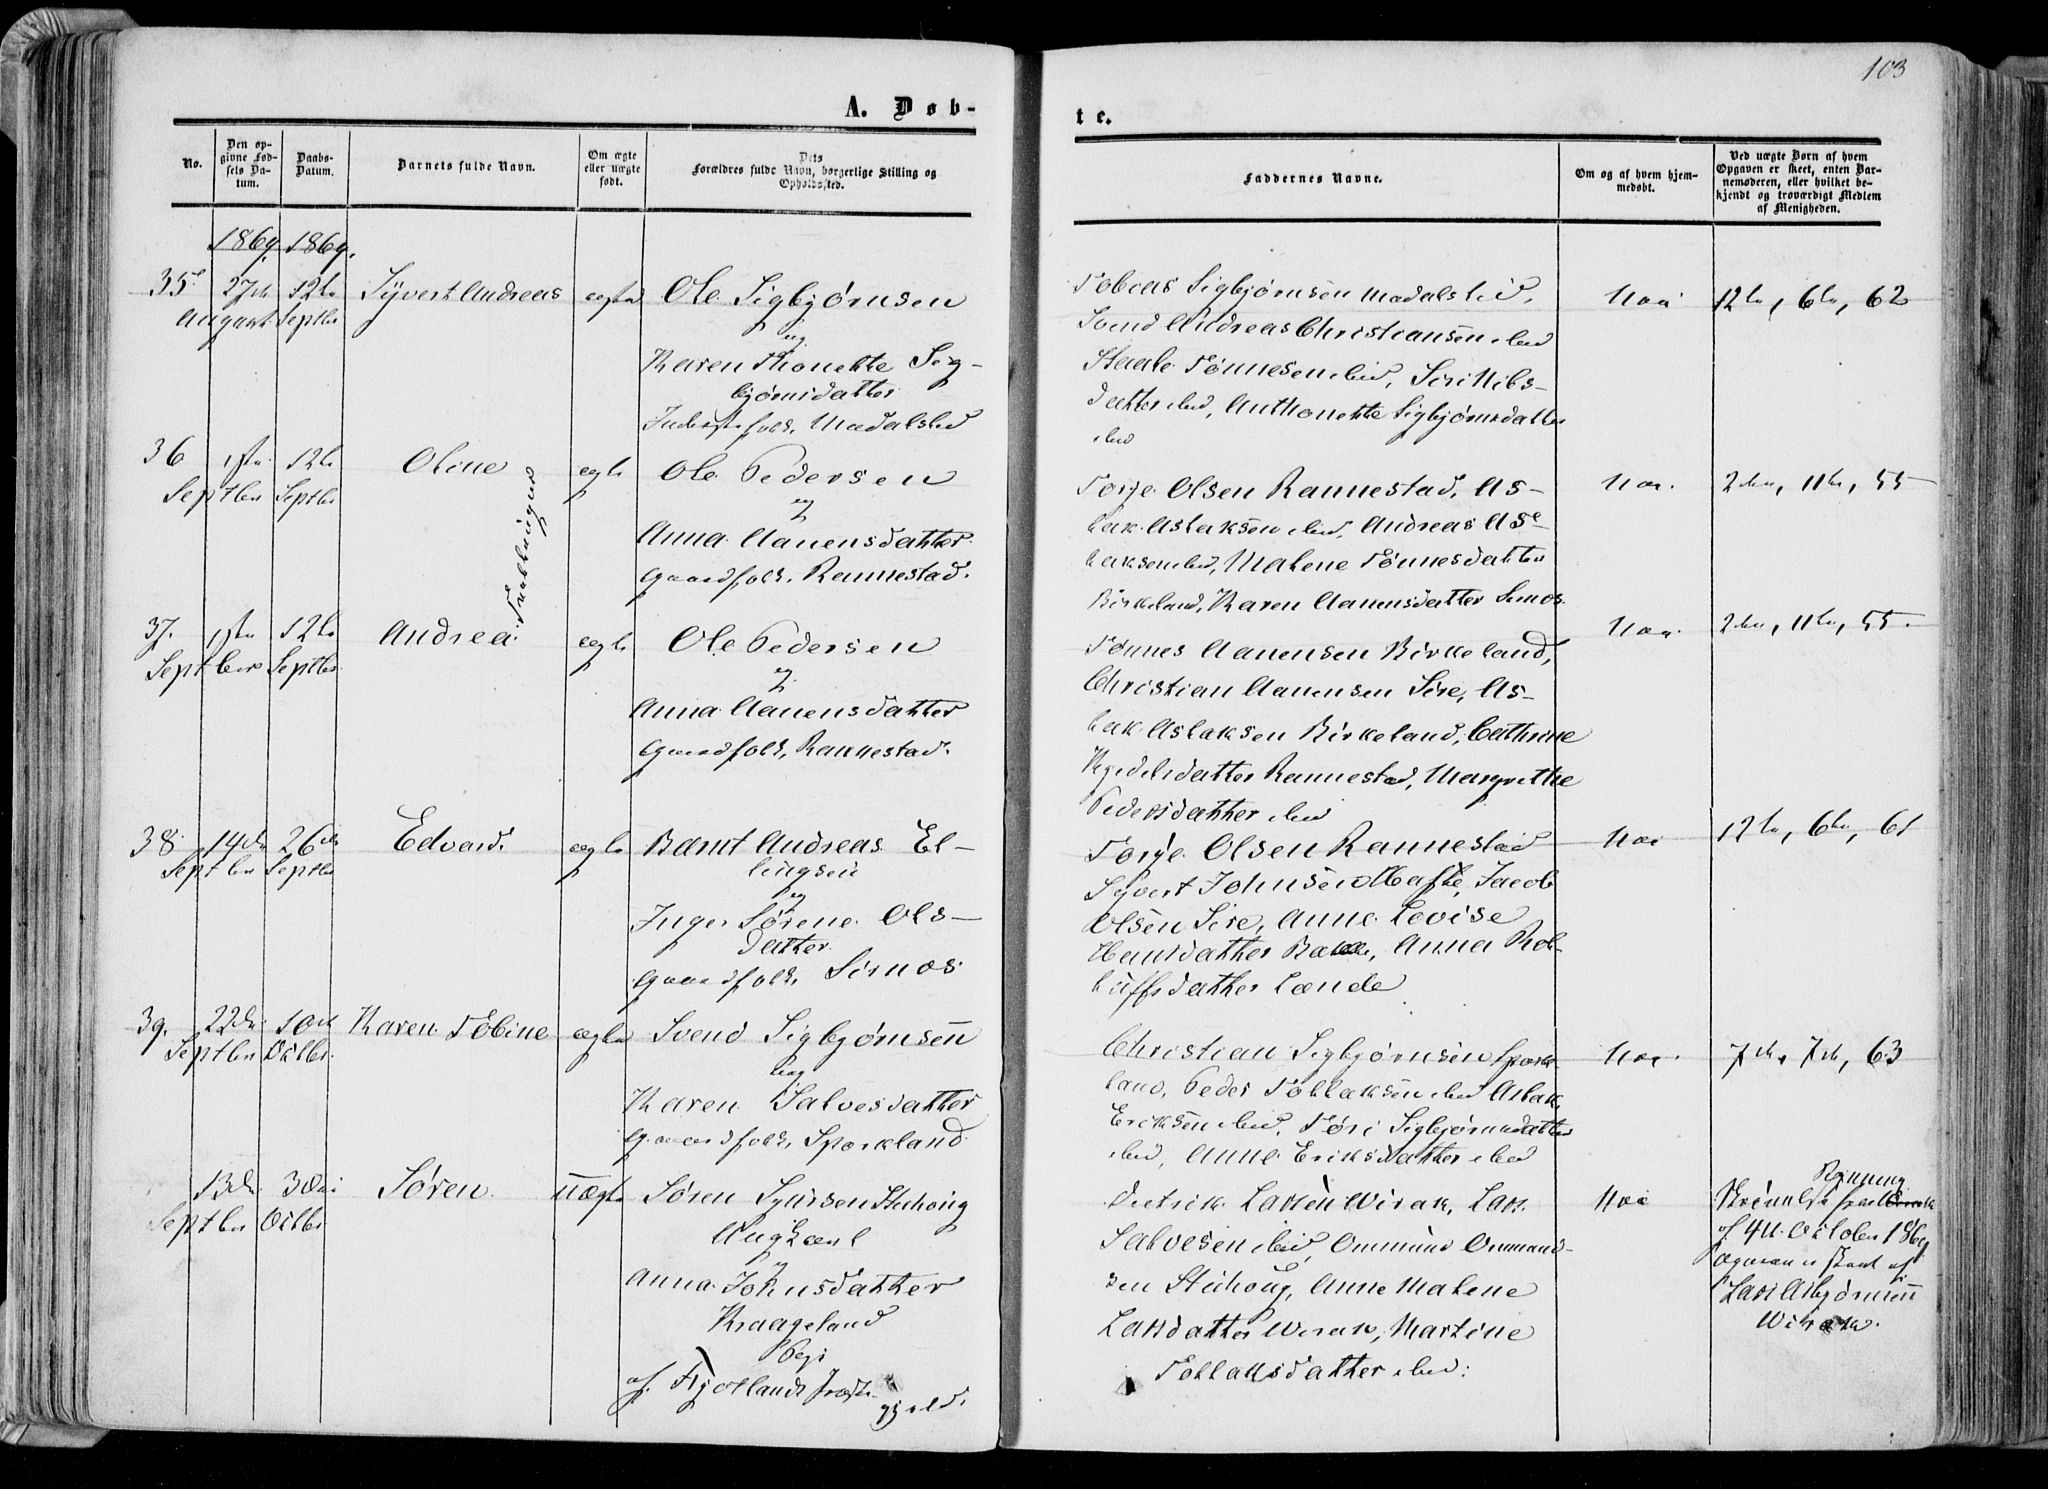 103
A. Døb-
te.
No.
Den op-
givne Fød-
sels Da-
tum.
Daabs-
Datum.
Barnets fulde Navn.
Om ægte
eller uægte
født.
Dets
Forældres fulde Navn, borgerlige Stilling og
Opholdssted.
Faddernes Navne.
Om og af hvem hjem-
medøbt.
Ved uægte Børn af hvem
Opgaven er skeet, enten Bar-
nemoderen, eller hvilket be-
kjendt og troværdigt Medlem
af Menigheden.
1869. 1869.
35 27de 12te Syvert Andreas ægte Ole Sigbjørnsen
August Septbr og
Karen Thonette Sig-
bjørnsdatter
Inderstfolk, Madalsted
Tobias Sigbjørnsen Madalsted,
Svend Andreas Christiansen ibid
Staale Tønnesen ibid, Siri Nils-
datter ibid, Anthonette Sigbjørnsdatter
ibid
12te, 6te, 62
36 1ste 12te Oline ægte Ole Pedersen
Septbr Septbr og
Anna Aanensdatter
Gaardfolk, Rannestad.
Tvillinger
Torje Olsen Rannestad, As-
lak Aslaksen ibid, Andreas As-
laksen ibid, Malene Tønnesdatter
Birkeland, Karen Aanensdatter Sirnos.
2den, 11te, 55
37. 1ste 12te Andrea ægte Ole Pedersen
Septber Septbr og
Anna Aanensdatter
Gaardfolk, Rannestad.
Tønnes Aanensen Birkeland,
Christian Aanensen Sire, As-
lak Aslaksen Birkeland, Cathrine
datter Rannestad, Margrethe
Pedersdatter ibid
2den, 11te, 55.
38 14de 26de Edvard. ægte Bernt Andreas El-
Septbr Septbr lingsen
og
Inger Sørene Ols-
datter
Gaardfolk, Sirnos
Torje Olsen Rannestad
Syvert Johnsen Hafte, Jacob
Olsen Sire, Anne Lovise
Hansdatter, Anna Rol-
luffsdatter Lande
12te, 6te, 61
39. 22de 10de Karen Tobine ægte Svend Sigbjørnsen
Septbr Octbr og
Karen Salvesdatter
Gaardfolk, Sporkland
Christian Sigbjørnsen Spork-
land, Peder Tollaksen ibid Aslak
Eriksen ibid, Tøri Sigbjørnsdatter
ibid, Anne Eriksdatter ibid
7de, 7de, 63
13de 3die Søren uægte Søren Syvrsen Stuhoug
Septbr Octbr Ungkarl
og
Anna Johnsdatter
Kraageland
Pige
af Fjotlands Præste-
gjeld.
Dietrik Larsen Wirak, Lars
Salvesen ibid, Ommund Ommund-
sen Stuhoug, Anne Malene
Larsdatter Wirak, Martine
Tollaksdatter ibid:
af 4de October 1869
Lars Asbjørnsen
Wirak.